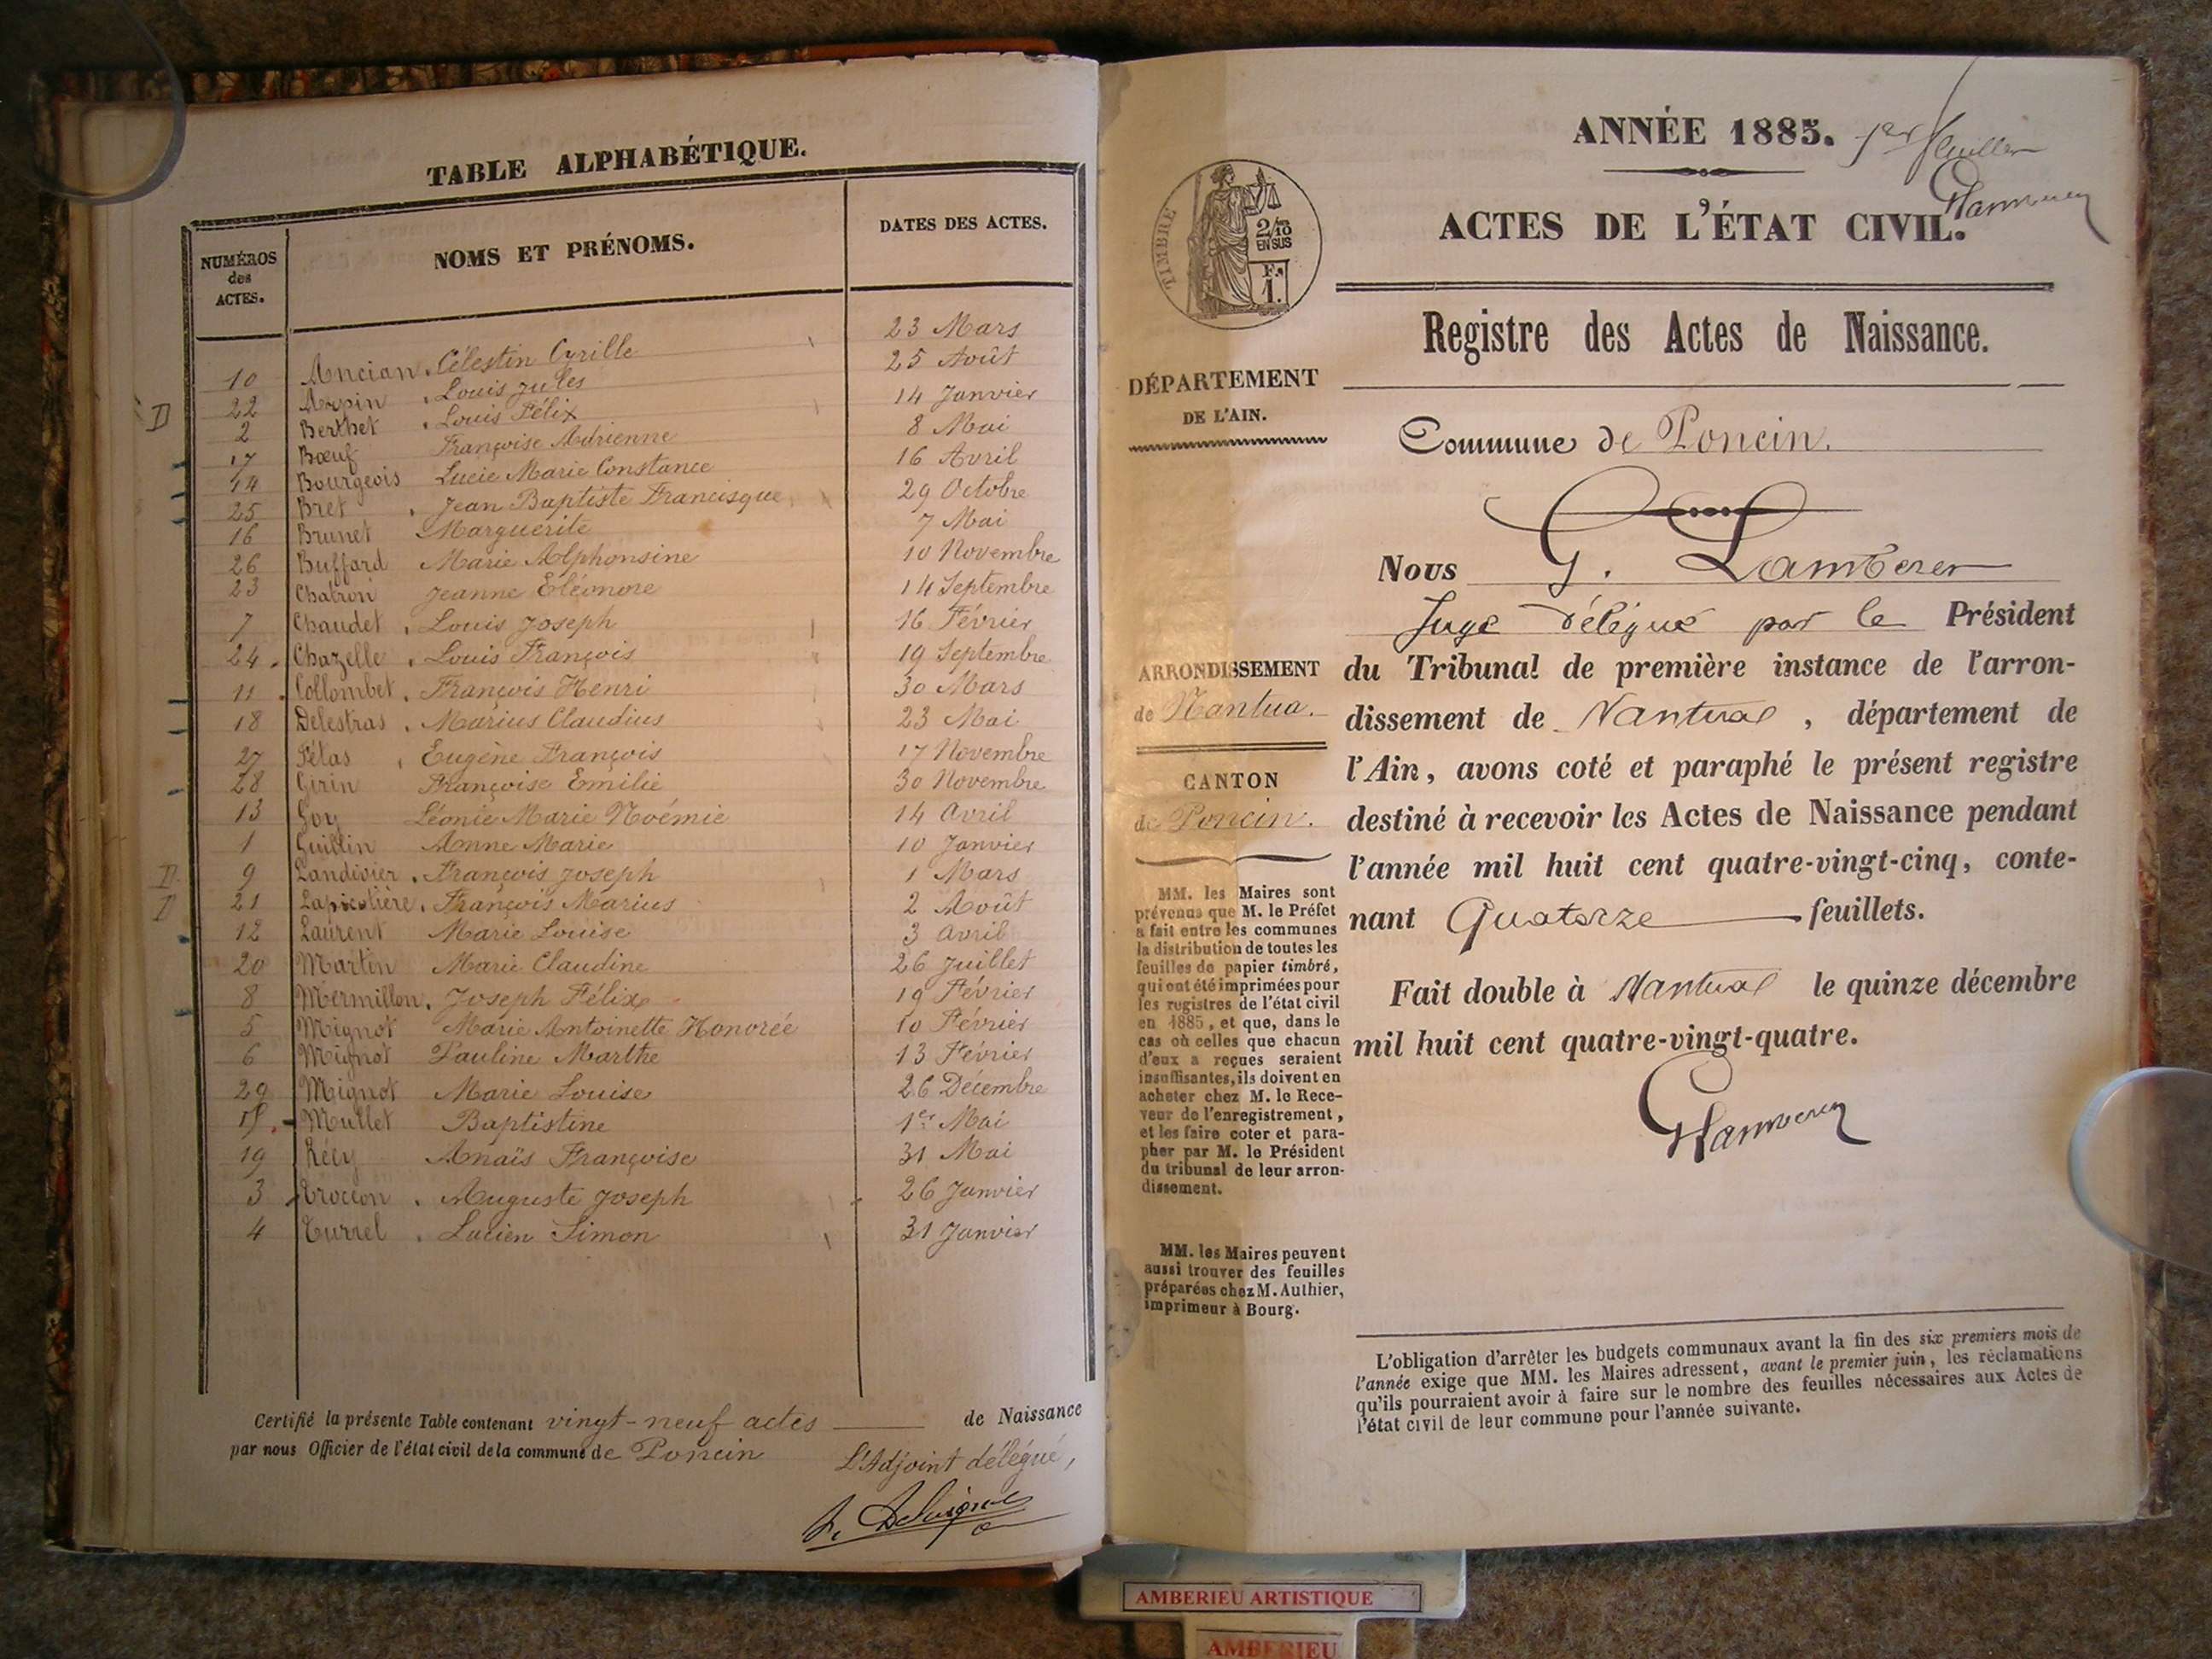 TABLE ALPHABÉTIQUE.
NUMÉROS des ACTES. NOMS ET PRÉNOMS. DATES DES ACTES.
10 Ancian Célestin Cyrille 23 Mars
22 Arpin Louis Jules 25 Août
D 2 Berthet Louis Félix 14 Janvier
17 Bœuf Françoise Adrienne 8 Mai
14 Bourgeois Lucie Marie Constance 16 Avril
25 Bret Jean Baptiste Francisque 29 Octobre
16 Brunet Marguerite 7 Mai
26 Buffard Marie Alphonsine 10 Novembre
23 Chabron Jeanne Eléonore 14 Septembre
7 Chaudet Louis Joseph 16 Février
24 Chazelle Louis François 19 Septembre
11 Collombet François Henri 30 Mars
18 Delestras Marius Claudius 23 Mai
27 Fétas Eugène François 17 Novembre
28 Girin Françoise Emilie 30 Novembre
13 Goy Léonie Marie Noémie 14 Avril
1 Guillin Anne Marie 10 Janvier
D 9 Landivier François Joseph 1 Mars
D 21 Lapicotière François Marius 2 Août
12 Laurent Marie Louise 3 Avril
20 Martin Marie Claudine 26 Juillet
8 Mermillon Joseph Félix 19 Février
5 Mignot Marie Antoinette Honorée 10 Février
6 Mignot Pauline Marthe 13 Février
29 Mignot Marie Louise 26 Décembre
15 Mullet Baptistine 1er Mai
19 Récy Anaïs Françoise 31 Mai
3 Troccon Auguste Joseph 26 Janvier
4 Turrel Lucien Simon 31 Janvier
Certifié la présente Table contenant vingt-neuf actes de Naissance
par nous Officier de l'état civil de la commune de Poncin
L'Adjoint délégué,
ANNÉE 1885. 1er feuillet
ACTES DE L'ÉTAT CIVIL.
TIMBRE
2/10
EN SUS
Fc
1.
Registre des Actes de Naissance.
DÉPARTEMENT
DE L'AIN.
Commune de Poncin.
Nous G. Lamberer
Juge délégué par le Président
du Tribunal de première instance de l'arron-
dissement de Nantua, département de
l'Ain, avons coté et paraphé le présent registre
destiné à recevoir les Actes de Naissance pendant
l'année mil huit cent quatre-vingt-cinq, conte-
nant Quatorze feuillets.
Fait double à Nantua le quinze décembre
mil huit cent quatre-vingt-quatre.
ARRONDISSEMENT
de Nantua.
CANTON
de Poncin.
MM. les Maires sont
prévenus que M. le Préfet
a fait entre les communes
la distribution de toutes les
feuilles de papier timbré,
qui ont été imprimées pour
les registres de l'état civil
en 1885, et que, dans le
cas où celles que chacun
d'eux a reçues seraient
insuffisantes, ils doivent en
acheter chez M. le Rece-
veur de l'enregistrement,
et les faire coter et para-
pher par M. le Président
du tribunal de leur arron-
dissement.
MM. les Maires peuvent
aussi trouver des feuilles
préparées chez M. Authier,
imprimeur à Bourg.
L'obligation d'arrêter les budgets communaux avant la fin des six premiers mois de
l'année exige que MM. les Maires adressent, avant le premier juin, les réclamations
qu'ils pourraient avoir à faire sur le nombre des feuilles nécessaires aux Actes de
l'état civil de leur commune pour l'année suivante.
AMBERIEU ARTISTIQUE
AMBERIEU